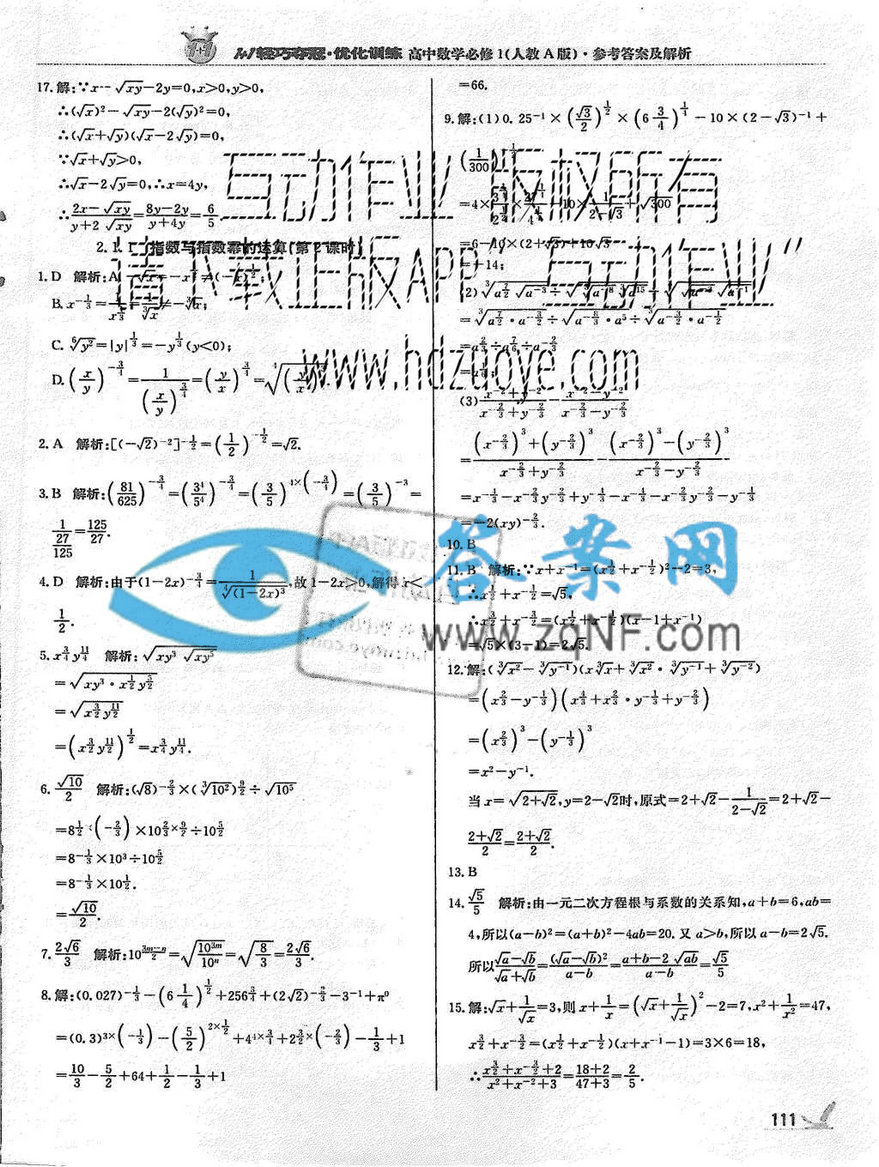 1+1轻巧夺冠·优化训练 高中数学必修1(人教A版)·参考答案及解析
17.解:∵x-√(xy)-2y=0,x>0,y>0,
∴(√x)²-√(xy)-2(√y)²=0,
∴(√x+√y)(√x-2√y)=0,
∵√x+√y>0,
∴√x-2√y=0,∴x=4y,
∴(2x-√(xy))/(y+2√(xy))=(8y-2y)/(y+4y)=6/5
2.1.1 指数与指数幂的运算(第2课时)
1.D 解析:A.
C.⁶√(y²)=|y|^(1/3)=-y^(1/3)(y<0);
D.(x/y)^(-3/4)=1/(x/y)^(3/4)=(y/x)^(3/4)=⁴√((y/x)³)
2.A 解析:[(-√2)^(-2)]^(-1/2)=(1/2)^(-1/2)=√2.
3.B 解析:(81/625)^(-3/4)=(3⁴/5⁴)^(-3/4)=(3/5)^(4×(-3/4))=(3/5)^(-3)=
1/(27/125)=125/27.
4.D 解析:由于(1-2x)^(-3/4)=1/⁴√((1-2x)³),故1-2x>0,解得x<
1/2.
5.x^(3/4)y^(11/4) 解析:√(xy³√(xy⁵))
=√(xy³·x^(1/2)y^(5/2))
=√(x^(3/2)y^(11/2))
=(x^(3/2)y^(11/2))^(1/2)=x^(3/4)y^(11/4).
6.√10/2 解析:(√8)^(-2/3)×(³√(10²))^(9/2)÷√(10⁵)
=8^(1/2×(-2/3))×10^(2/3×9/2)÷10^(5/2)
=8^(-1/3)×10³÷10^(5/2)
=8^(-1/3)×10^(1/2).
=√10/2.
7.2√6/3 解析:10^((3m-n)/2)=√(10^(3m)/10^n)=√(8/3)=2√6/3.
8.解:(0.027)^(-1/3)-(6 1/4)^(1/2)+256^(3/4)+(2√2)^(-2/3)-3^(-1)+π⁰
=(0.3)^(3×(-1/3))-(5/2)^(2×1/2)+4^(4×3/4)+2^(3/2×(-2/3))-1/3+1
=10/3-5/2+64+1/2-1/3+1
=66.
9.解:(1)0.25^(-1)×(√3/2)^(1/2)×(6 3/4)^(1/4)-10×(2-√3)^(-1)+
(1/300)^(-1/2)
=6-10×(2+√3)+10√3
=-14;
(3)(x^(-2)+y^(-2))/(x^(-2/3)+y^(-2/3))-(x^(-2)-y^(-2))/(x^(-2/3)-y^(-2/3))
=((x^(-2/3))³+(y^(-2/3))³)/(x^(-2/3)+y^(-2/3))-((x^(-2/3))³-(y^(-2/3))³)/(x^(-2/3)-y^(-2/3))
=x^(-4/3)-x^(-2/3)y^(-2/3)+y^(-4/3)-x^(-4/3)-x^(-2/3)y^(-2/3)-y^(-4/3)
=-2(xy)^(-2/3).
10.B
11.B 解析:∵x+x^(-1)=(x^(1/2)+x^(-1/2))²-2=3,
∴x^(1/2)+x^(-1/2)=√5,
∴x^(3/2)+x^(-3/2)=(x^(1/2)+x^(-1/2))(x-1+x^(-1))
=√5×(3-1)=2√5.
12.解:(³√(x²)-³√(y^(-1)))(x³√x+³√(x²)·³√(y^(-1))+³√(y^(-2)))
=(x^(2/3)-y^(-1/3))(x^(4/3)+x^(2/3)·y^(-1/3)+y^(-2/3))
=(x^(2/3))³-(y^(-1/3))³
=x²-y^(-1).
当x=√(2+√2),y=2-√2时,原式=2+√2-1/(2-√2)=2+√2-
(2+√2)/2=(2+√2)/2.
13.B
14.√5/5 解析:由一元二次方程根与系数的关系知,a+b=6,ab=
4,所以(a-b)²=(a+b)²-4ab=20.又a>b,所以a-b=2√5.
所以(√a-√b)/(√a+√b)=(√a-√b)²/(a-b)=(a+b-2√(ab))/(a-b)=√5/5
15.解:√x+1/√x=3,则x+1/x=(√x+1/√x)²-2=7,x²+1/x²=47,
x^(3/2)+x^(-3/2)=(x^(1/2)+x^(-1/2))(x+x^(-1)-1)=3×6=18,
∴(x^(3/2)+x^(-3/2)+2)/(x²+x^(-2)+3)=(18+2)/(47+3)=2/5.
111
互动作业 版权所有
请下载正版APP"互动作业"
www.hdzuoye.com
答案网
www.zqNF.com